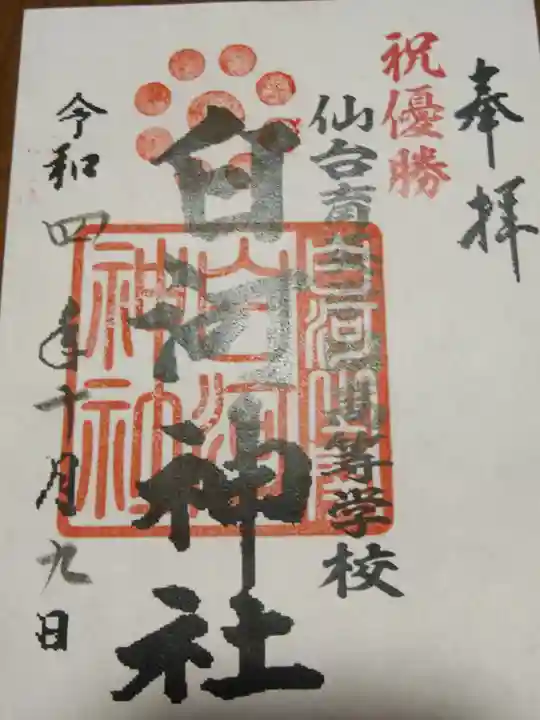 奉拝
祝優勝
仙台育英高等学校
白河神社
令和四年十月九日